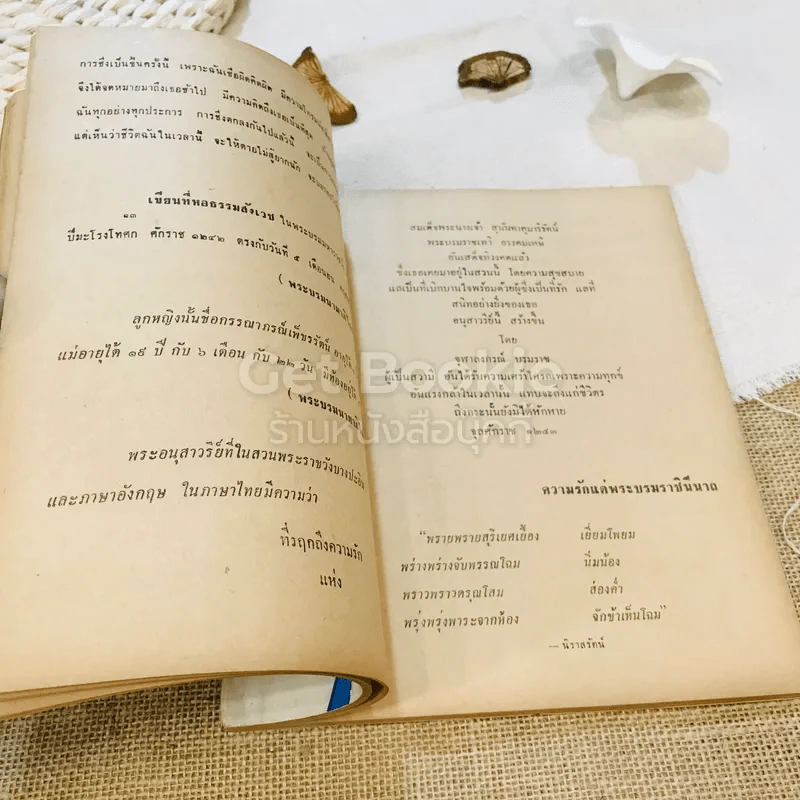 การซึ่งเป็นขึ้นครั้งนี้ เพราะฉันเชื่อผิดคิดผิด มีความ
จึงได้จดหมายมาถึงเธอช้าไป มีความคิดถึงเธอเป็นที่สุด
ฉันทุกอย่างทุกประการ การซึ่งตกลงกันไปแล้วนี้
แต่เห็นว่าชีวิตฉันในเวลานี้ จะให้ตายไม่สู้ยากนัก
เขียนที่หอธรรมสังเวช ในพระบรมมหาราชวัง
๑๓
ปีมะโรงโทศก ศักราช ๑๒๔๒ ตรงกับวันที่ ๕ เดือน
( พระบรมนามาภิไธย
ลูกหญิงนั้นชื่อกรรณาภรณ์เพ็ชรรัตน์ อายุได้
แม่อายุได้ ๑๙ ปี กับ ๖ เดือน กับ ๒๒ วัน มีท้องอยู่ได้
( พระบรมนามาภิไธย
พระอนุสาวรีย์ที่ในสวนพระราชวังบางปะอิน
และภาษาอังกฤษ ในภาษาไทยมีความว่า
ที่รฤกถึงความรัก
แห่ง
สมเด็จพระนางเจ้า สุนันทากุมารีรัตน์
พระบรมราชเทวี อรรคมเหษี
อันเสด็จทิวงคตแล้ว
ซึ่งเธอเคยมาอยู่ในสวนนี้ โดยความสุขสบาย
แลเป็นที่เบิกบานใจพร้อมด้วยผู้ซึ่งเป็นที่รัก แลที่
สนิทอย่างยิ่งของเธอ
อนุสาวรีย์นี้ สร้างขึ้น
โดย
จุฬาลงกรณ์ บรมราช
ผู้เป็นสวามี อันได้รับความเศร้าโศกเพราะความทุกข์
อันแรงกล้าในเวลานั้น แทบจะถึงแก่ชีวิตร
ถึงกระนั้นยังมิได้หักหาย
จุลศักราช ๑๒๔๓
Get Bookie
ร้านหนังสือบุ๊คกี้
ความรักแด่พระบรมราชินีนาถ
“พรายพรายสุริเยศเยื้อง เยี่ยมโพยม
พร่างพร่างจับพรรณโฉม นิ่มน้อง
พราวพราวดรุณโสม ส่องค่ำ
พรุ่งพรุ่งพาระจากห้อง จักช้าเห็นโฉม”
— นิราสรัตน์